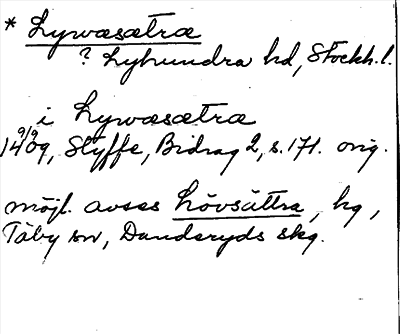 * Lywæsætræ
? Lyhundra hd, Stockh. l.
i Lywæsætræ
9/9
1409, Styffe, Bidrag 2, s. 171. orig.
möjl. avses Lövsättra, hg,
Täby sn, Danderyds skg.